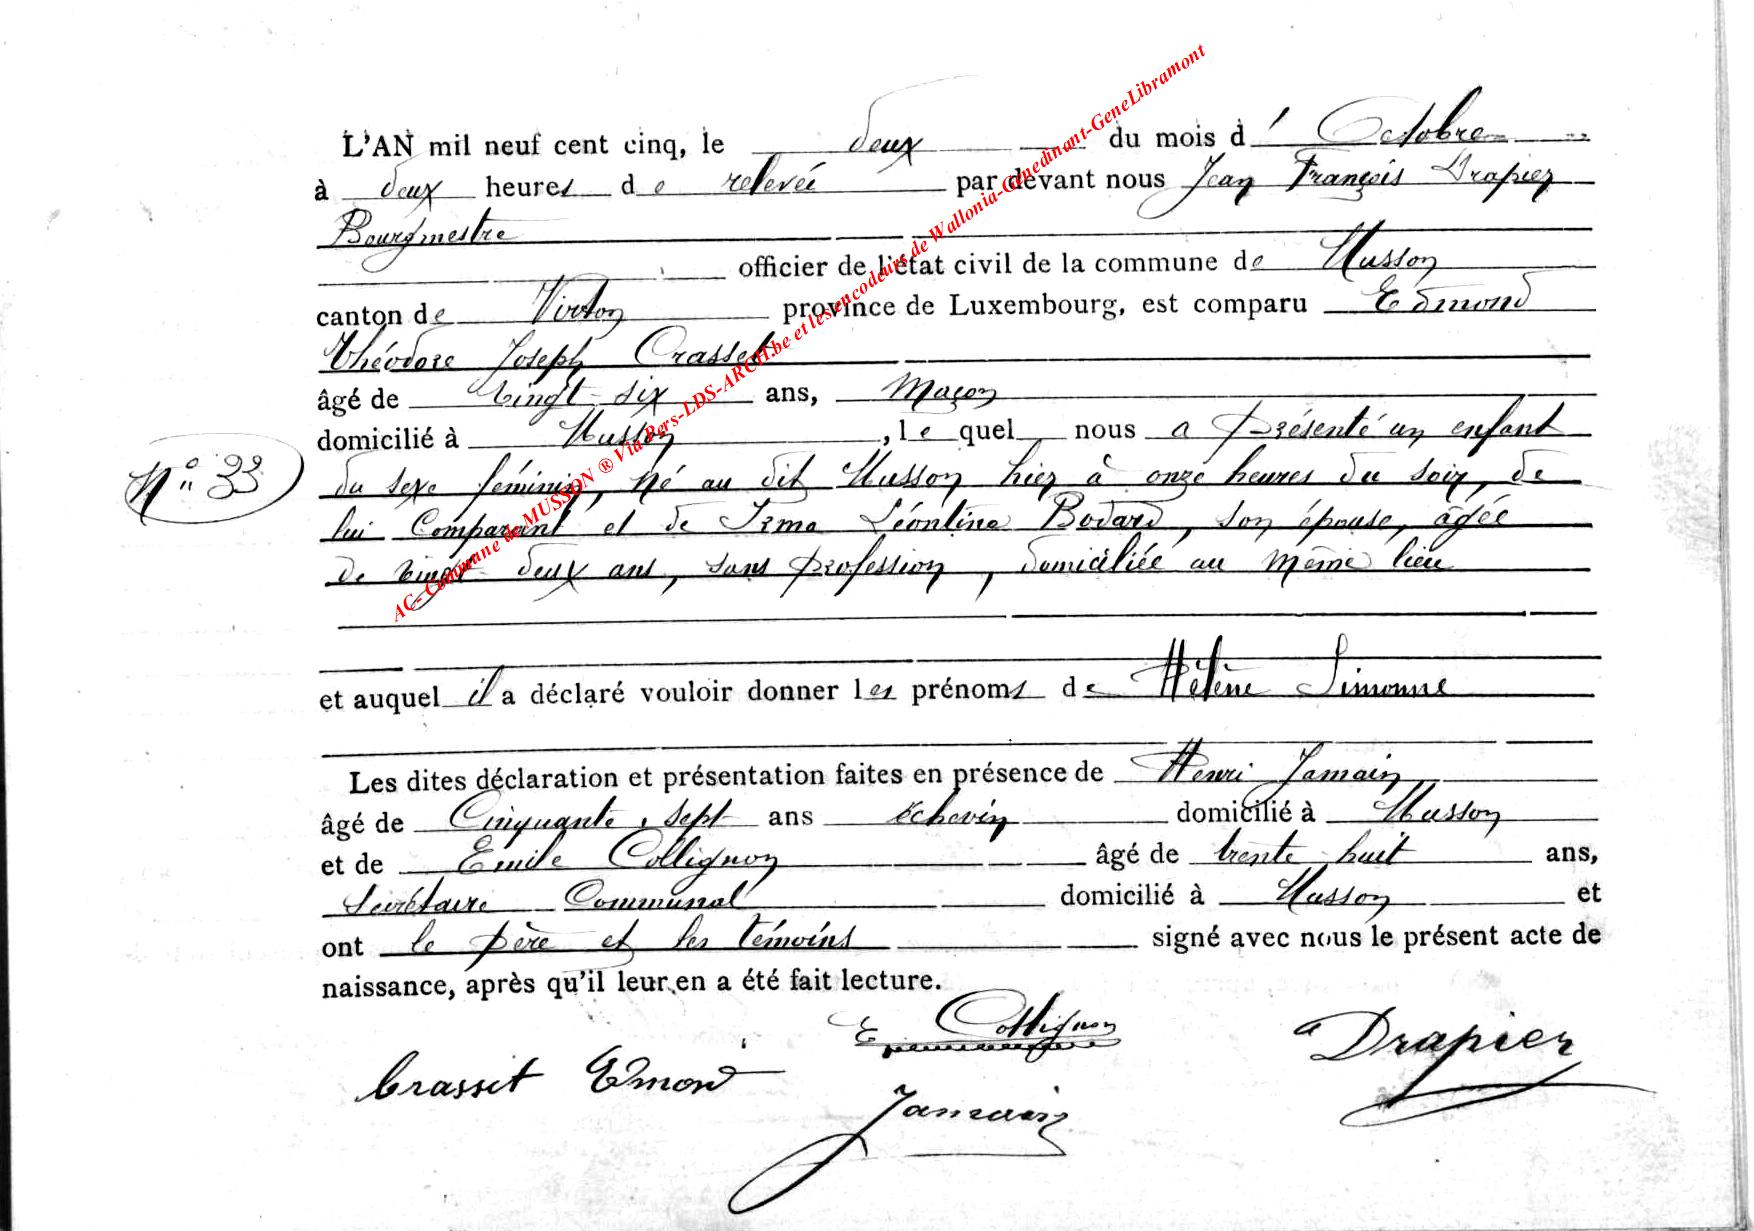 L'AN mil neuf cent cinq, le deux du mois d' Octobre
à deux heures de relevée par devant nous Jean François Drapier
Bourgmestre
officier de l'état civil de la commune de Musson
canton de Virton province de Luxembourg, est comparu Edmond
Théodore Joseph Crasset
âgé de vingt-six ans, Maçon
domicilié à Musson, lequel nous a présenté un enfant
N° 33
du sexe féminin, né au dit Musson hier à onze heures du soir, de
lui Comparant et de Irma Léontine Bodard, son épouse, âgée
de vingt-deux ans, sans profession, domiciliée au même lieu
et auquel il a déclaré vouloir donner les prénoms de Hélène Simonne
Les dites déclaration et présentation faites en présence de Henri Jamain
âgé de Cinquante-sept ans échevin domicilié à Musson
et de Emile Collignon âgé de trente-huit ans,
Secrétaire Communal domicilié à Musson et
ont le père et les témoins signé avec nous le présent acte de
naissance, après qu'il leur en a été fait lecture.
E Collignon
Drapier
Crasset Edmond
Jamain
AC-Commune de MUSSON ® Via Pers-LDS-ARCH.be et les encodeurs de Wallonia-Genedinant-GeneLibramont